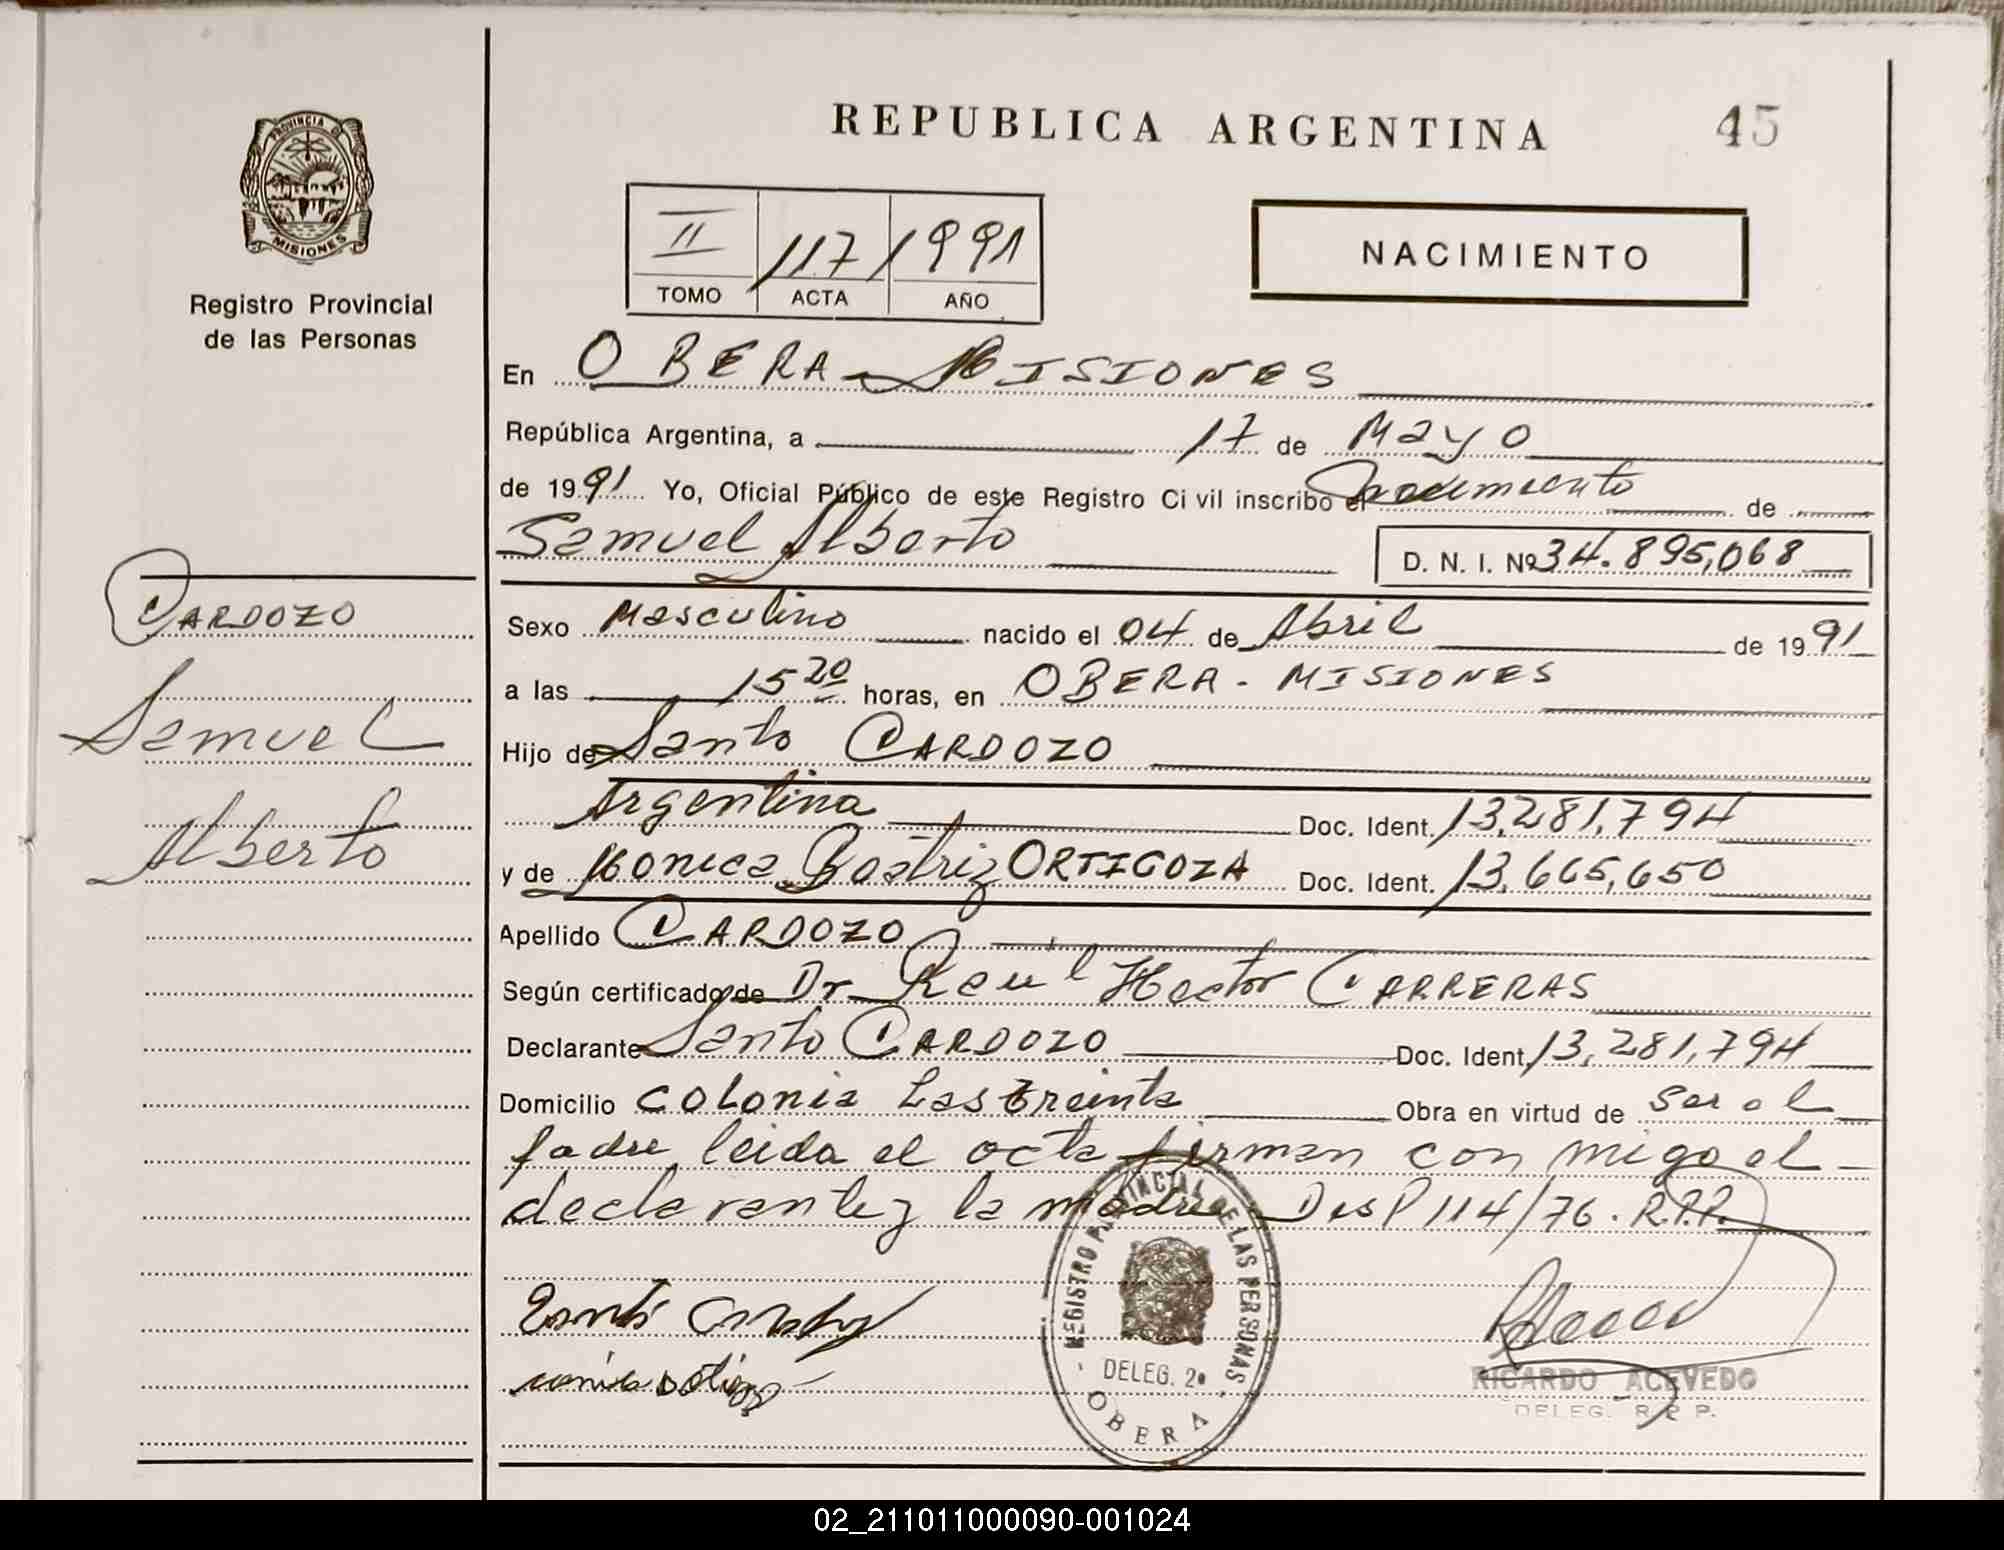 REPUBLICA ARGENTINA
45
PROVINCIA DE
MISIONES
Registro Provincial
de las Personas
II 117 1991
TOMO ACTA AÑO
NACIMIENTO
En OBERA - MISIONES
República Argentina, a 17 de Mayo
de 1991 Yo, Oficial Público de este Registro Ci vil inscribo el Nacimiento de
Samuel Alberto
D. N. I. Nº 34.895,068
CARDOZO
Samuel
Alberto
Sexo Masculino nacido el 04 de Abril de 1991
a las 15 20 horas, en OBERA - MISIONES
Hijo de Santo CARDOZO
Argentina Doc. Ident. 13,281,794
y de Monica Beatriz ORTIGOZA Doc. Ident. 13,665,650
Apellido CARDOZO
Según certificado de Dr Raul Hector CARRERAS
Declarante Santo CARDOZO Doc. Ident. 13,281,794
Domicilio Colonia Las treinta Obra en virtud de ser el
padre leida el acta firman con migo el
declarante y la madre - Disp 114/76. R.P.P.
REGISTRO PROVINCIAL DE LAS PERSONAS
DELEG. 2a
OBERA
RICARDO ACEVEDO
DELEG. R. P. P.
02_211011000090-001024